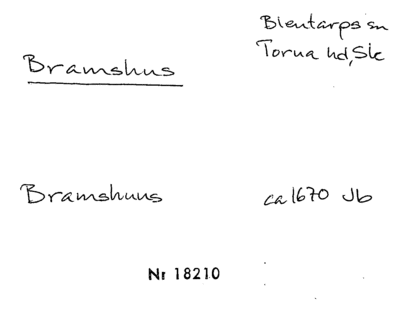 Blentarps sn
Torna hd, Sk
Bramshus
Bramshuus ca 1670 Jb
Nr 18210